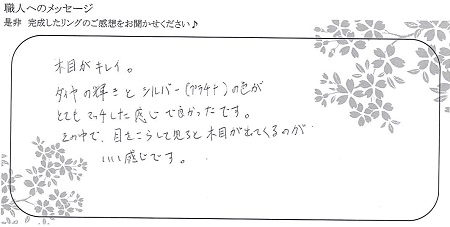 職人へのメッセージ
是非 完成したリングのご感想をお聞かせください♪
木目がキレイ。
ダイヤの輝きと シルバー(プラチナ)の色が
とても マッチした感じで良かったです。
その中で、目をこらして見ると木目が出てくるのが
いい感じです。